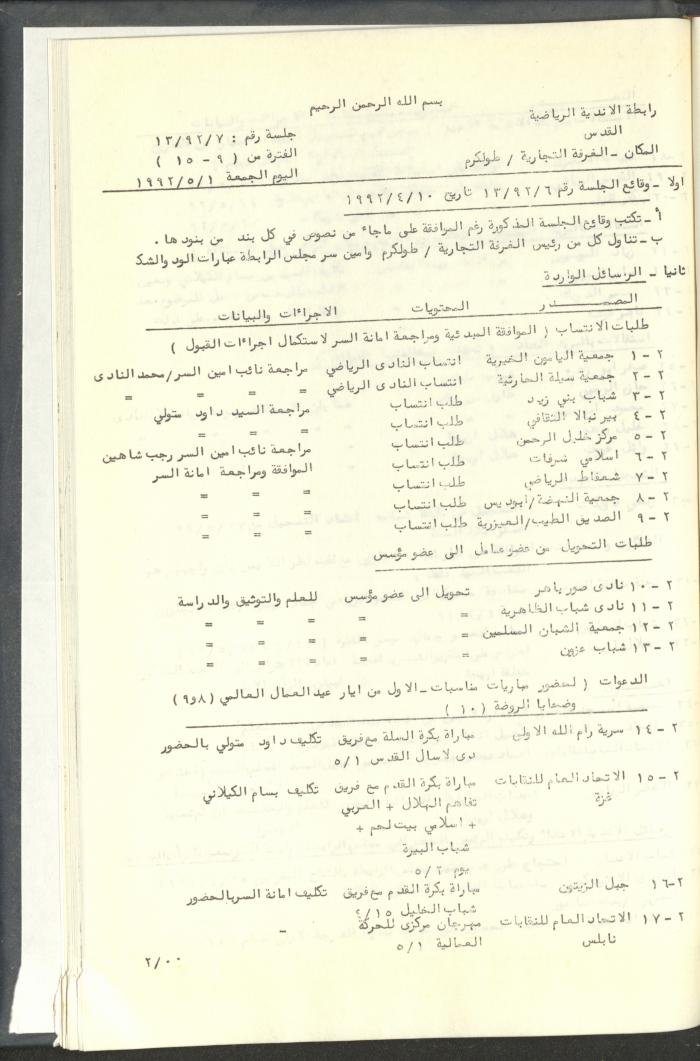 بسم الله الرحمن الرحيم
رابطة الاندية الرياضية
القدس
جلسة رقم : ١٣/٩٢/٧
المكان ـ الغرفة التجارية / طولكرم
الفترة من ( ٩ - ١٥ )
اليوم الجمعة ١٩٩٢/٥/١
اولا ـ وقائع الجلسة رقم ١٣/٩٢/٦ تاريخ ١٩٩٢/٤/١٠
أ ـ تكتب وقائع الجلسة المذكورة رغم الموافقة على ماجاء من نصوص في كل بند من بنودها .
ب ـ تناول كل من رئيس الغرفة التجارية / طولكرم وامين سر مجلس الرابطة عبارات الود والشك
ثانيا ـ الرسائل الواردة
المصدر المحتويات الاجراءات والبيانات
طلبات الانتساب ( الموافقة المبدئية ومراجعة امانة السر لاستكمال اجراءات القبول )
٢ - ١ جمعية اليامون الخيرية انتساب النادى الرياضي مراجعة نائب امين السر/محمد النادى
٢ - ٢ جمعية سيلة الحارثية انتساب النادى الرياضي = = = =
٢ - ٣ شباب بني زيد طلب انتساب مراجعة السيد داود متولي
٢ - ٤ بير نبالا الثقافي طلب انتساب = = =
٢ - ٥ مركز خليل الرحمن طلب انتساب مراجعة نائب امين السر رجب شاهين
٢ - ٦ اسلامي شرفات طلب انتساب الموافقة ومراجعة امانة السر
٢ - ٧ شعفاط الرياضي طلب انتساب = = =
٢ - ٨ جمعية النهضة/ابوديس طلب انتساب = = =
٢ - ٩ الصديق الطيب/العيزرية طلب انتساب = = =
طلبات التحويل من عضو عامل الى عضو مؤسس
٢ - ١٠ نادى صور باهر تحويل الى عضو مؤسس للعلم والتوثيق والدراسة
٢ - ١١ نادى شباب الظاهرية = = = = =
٢ - ١٢ جمعية الشبان المسلمين = = = = =
٢ - ١٣ شباب عزون = = = = =
الدعوات ( لحضور مباريات مناسبات ـ الاول من ايار عيد العمال العالمي (٨و٩)
وضحايا الروضة ( ١٠ )
٢ - ١٤ سرية رام الله الاولى مباراة بكرة السلة مع فريق تكليف داود متولي بالحضور
دى لاسال القدس ٥/١
٢ - ١٥ الاتحاد العام للنقابات مباراة بكرة القدم مع فريق تكليف بسام الكيلاني
غزة تفاهم الهلال + العربي
+ اسلامي بيت لحم +
شباب البيرة
يوم ٥/٢
٢-١٦ جبل الزيتون مباراة بكرة القدم مع فريق تكليف امانة السر بالحضور
شباب الخليل ٤/١٥
٢ - ١٧ الاتحاد العام للنقابات مهرجان مركزى للحركة -
نابلس العمالية ٥/١
٢/٠٠